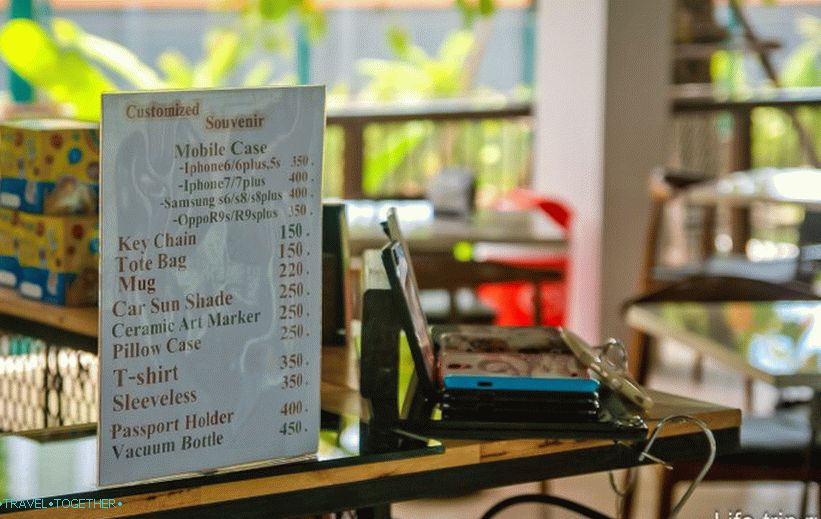 Customized
Souvenir
Mobile Case
-Iphone6/6plus,5s 350.
-Iphone7/7plus 400.
-Samsung s6/s8/s8plus 400.
-OppoR9s/R9splus 350.
Key Chain 150.
Tote Bag 150.
Mug 220.
Car Sun Shade 250.
Ceramic Art Marker 250.
Pillow Case 250.
T-shirt 350.
Sleeveless 350.
Passport Holder 400.
Vacuum Bottle 450.
•TRAVEL•TOGETHER•